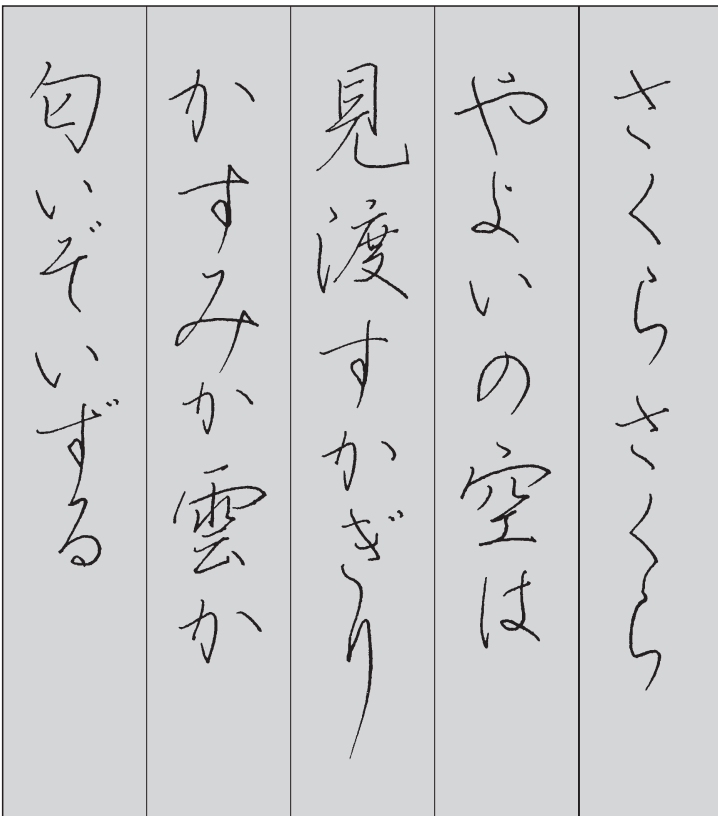 さくらさくら
やよいの空は
見渡すかぎり
かすみか雲か
匂いぞいずる